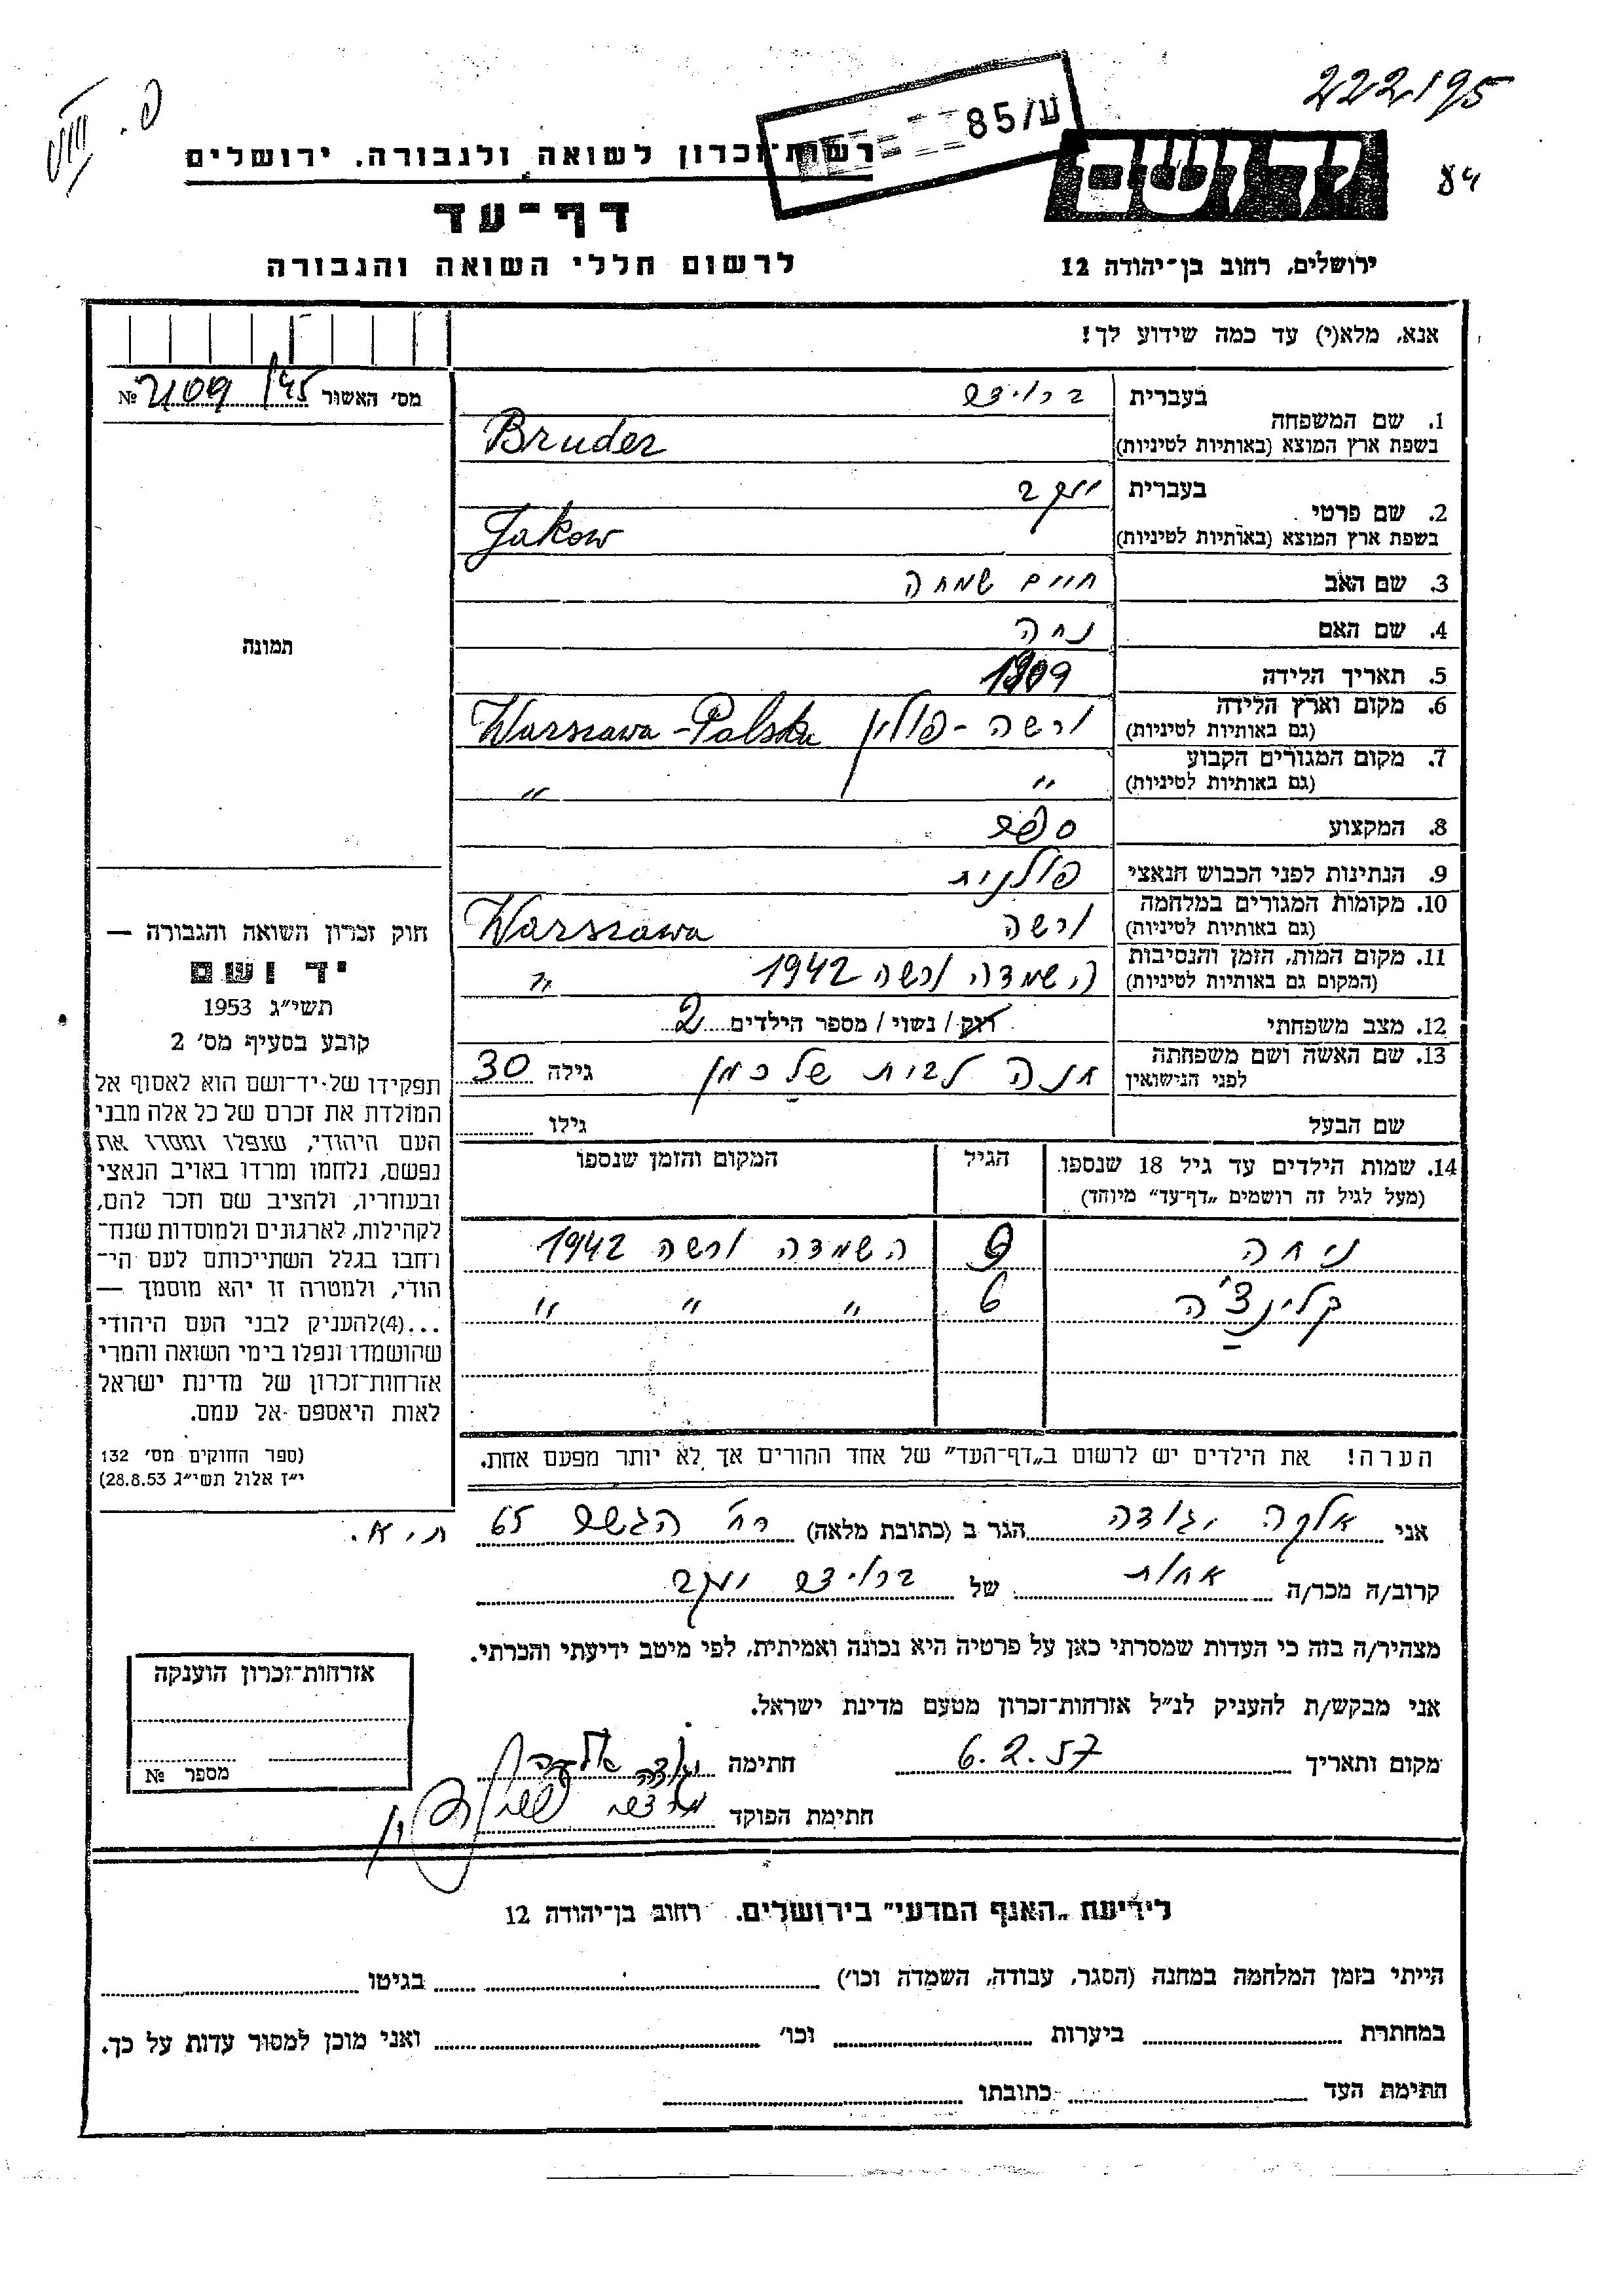 222195
פ. VIII
ע/85
84
יד ושם
רשות־זכרון לשואה ולגבורה, ירושלים
דף־עד
לרשום חללי השואה והגבורה
ירושלים, רחוב בן־יהודה 12
אנא, מלא(י) עד כמה שידוע לך!
מס׳ האשור 2109/45 №
תמונה
1. שם המשפחה
בעברית ברוידר
בשפת ארץ המוצא (באותיות לטיניות) Bruder
2. שם פרטי
בעברית יעקב
בשפת ארץ המוצא (באותיות לטיניות) Jakow
3. שם האב חיים שמחה
4. שם האם נחה
5. תאריך הלידה 1909
6. מקום וארץ הלידה ורשה - פולין Warszawa - Polska
(גם באותיות לטיניות)
7. מקום המגורים הקבוע " "
(גם באותיות לטיניות)
8. המקצוע ספר
9. הנתינות לפני הכבוש הנאצי פולנית
10. מקומות המגורים במלחמה ורשה Warszawa
(גם באותיות לטיניות)
11. מקום המות, הזמן והנסיבות השמדה ורשה 1942 "
(המקום גם באותיות לטיניות)
12. מצב משפחתי רוק / נשוי / מספר הילדים 2
13. שם האשה ושם משפחתה חנה לבית שלכמן גילה 30
לפני הנישואין
שם הבעל גילו
14. שמות הילדים עד גיל 18 שנספו הגיל המקום והזמן שנספו
(מעל לגיל זה רושמים „דף־עד” מיוחד)
ניחה 9 השמדה ורשה 1942
קלינצ'ה 6 " " " "
הערה! את הילדים יש לרשום ב„דף־העד” של אחד ההורים אך לא יותר מפעם אחת.
חוק זכרון השואה והגבורה —
יד ושם
תשי״ג 1953
קובע בסעיף מס׳ 2
תפקידו של יד־ושם הוא לאסוף אל
המולדת את זכרם של כל אלה מבני
העם היהודי, שנפלו ומסרו את
נפשם, נלחמו ומרדו באויב הנאצי
ובעוזריו, ולהציב שם וזכר להם,
לקהילות, לארגונים ולמוסדות שנח־
רחבו בגלל השתייכותם לעם הי־
הודי, ולמטרה זו יהא מוסמך —
...(4)להעניק לבני העם היהודי
שהושמדו ונפלו בימי השואה והמרי
אזרחות־זכרון של מדינת ישראל
לאות היאספם אל עמם.
(ספר החוקים מס׳ 132
י״ז אלול תשי״ג 28.8.53)
אני אלקה יגודה הגר ב (כתובת מלאה) רח׳ הגשר 65 ת.א.
קרוב/ה מכר/ה אחות של ברוידר יעקב
מצהיר/ה בזה כי העדות שמסרתי כאן על פרטיה היא נכונה ואמיתית, לפי מיטב ידיעתי והכרתי.
אני מבקש/ת להעניק לנ״ל אזרחות־זכרון מטעם מדינת ישראל.
מקום ותאריך 6.2.57 חתימה יגודה אלקה
חתימת הפוקד
אזרחות־זכרון הוענקה
מספר №
לידיעת „האגף המדעי” בירושלים. רחוב בן־יהודה 12
הייתי בזמן המלחמה במחנה (הסגר, עבודה, השמדה וכו׳) בגיטו
במחתרת ביערות וכו׳ ואני מוכן למסור עדות על כך.
חתימת העד כתובתו